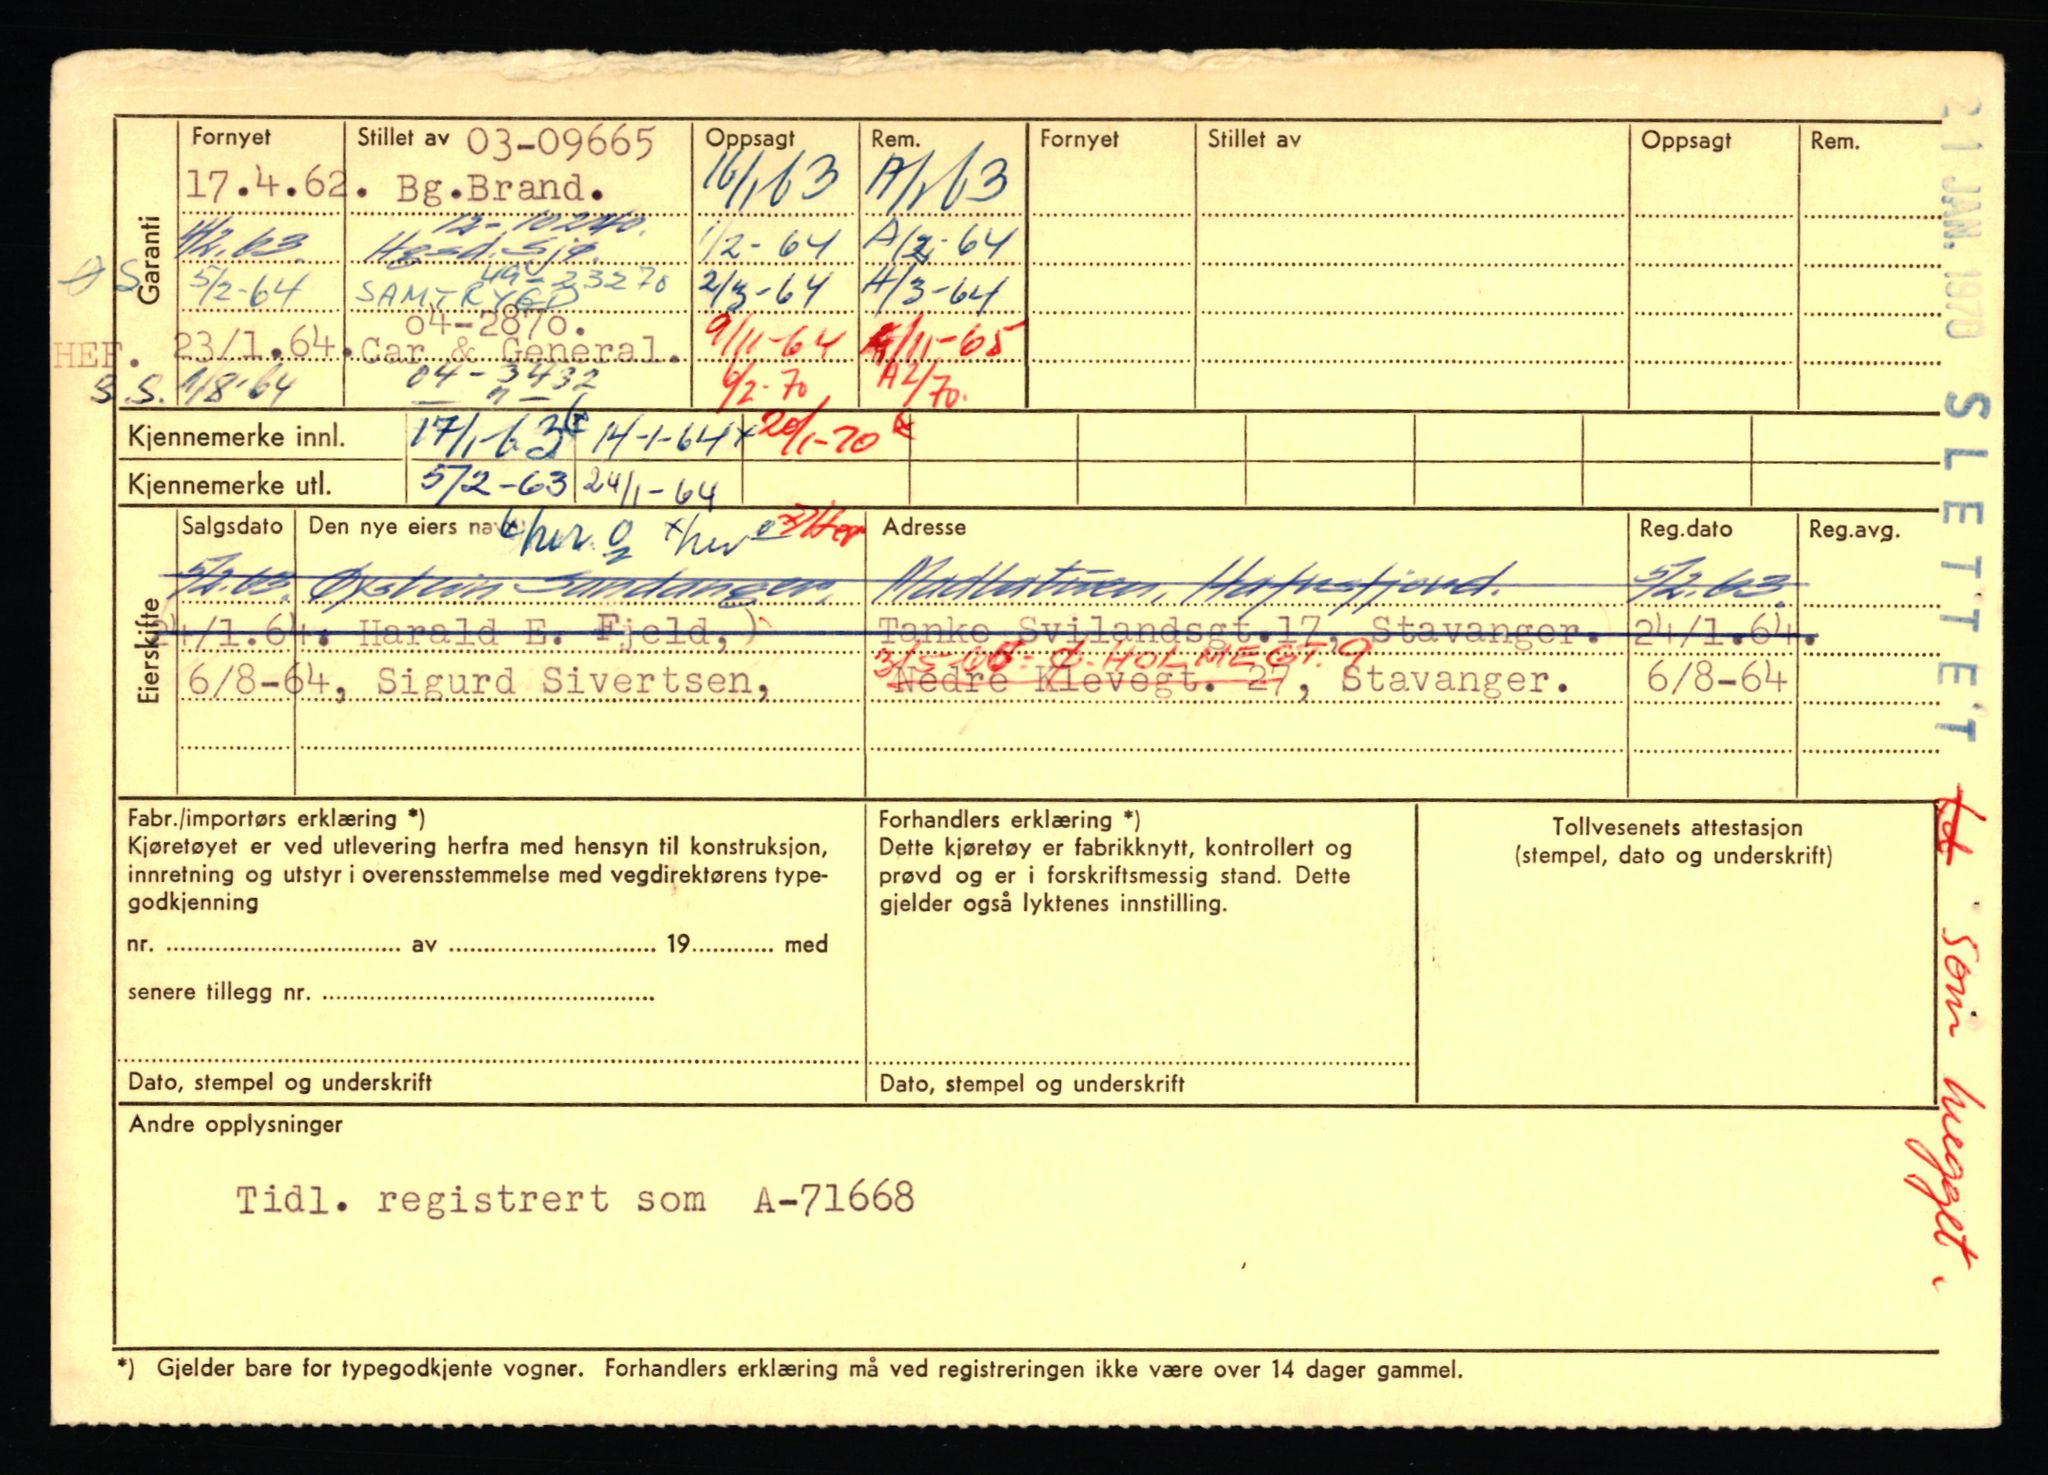 Garanti
Fornyet Stillet av 03-09665 Oppsagt Rem. Fornyet Stillet av Oppsagt Rem.
17.4.62. Bg.Brand. 16/1 63 A/1 63
12-10240.
4/2.63. Hgsd. Sjø. 1/2-64 A/2-64
49-23270
ØS 5/2-64 SAMTRYGD 2/3-64 A/3-64
04-2870.
HEF. 23/1.64. Car & General. 9/11-64 /11-65
S.S. 04-3432 6/2-70 A2/70.
— " —
Kjennemerke innl. 17/1-63 14-1-64x 20/1-70
Kjennemerke utl. 5/2-63 24/1-64
Eierskifte
Salgsdato Den nye eiers her. x her Adresse Reg.dato Reg.avg.
5/2.63. Øystein Sandanger, Madlatuen, Hafrsfjord. 5/2.63.
24/1.64. Harald E. Fjeld, Tanke Svilandsgt.17, Stavanger. 24/1.64.
3/5-66- Ø. HOLMEGT. 9
6/8-64, Sigurd Sivertsen, Nedre Klevegt. 27, Stavanger. 6/8-64
Fabr./importørs erklæring *)
Kjøretøyet er ved utlevering herfra med hensyn til konstruksjon,
innretning og utstyr i overensstemmelse med vegdirektørens type-
godkjenning
nr. av 19 med
senere tillegg nr.
Dato, stempel og underskrift
Forhandlers erklæring *)
Dette kjøretøy er fabrikknytt, kontrollert og
prøvd og er i forskriftsmessig stand. Dette
gjelder også lyktenes innstilling.
Dato, stempel og underskrift
Tollvesenets attestasjon
(stempel, dato og underskrift)
Andre opplysninger
Tidl. registrert som A-71668
*) Gjelder bare for typegodkjente vogner. Forhandlers erklæring må ved registreringen ikke være over 14 dager gammel.
21 JAN. 1970 SLETTET
som